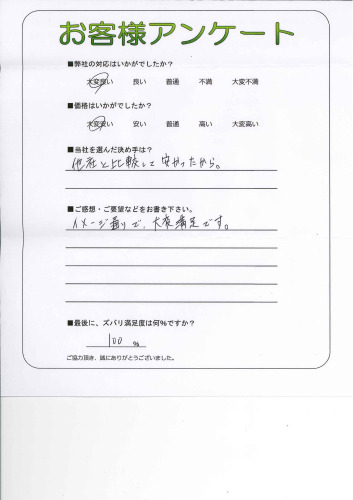 お客様アンケート
■弊社の対応はいかがでしたか？
大変良い 良い 普通 不満 大変不満
■価格はいかがでしたか？
大変安い 安い 普通 高い 大変高い
■当社を選んだ決め手は？
他社と比較して安かったから。
■ご感想・ご要望などをお書き下さい。
イメージ通りで、大変満足です。
■最後に、ズバリ満足度は何％ですか？
100 ％
ご協力頂き、誠にありがとうございました。